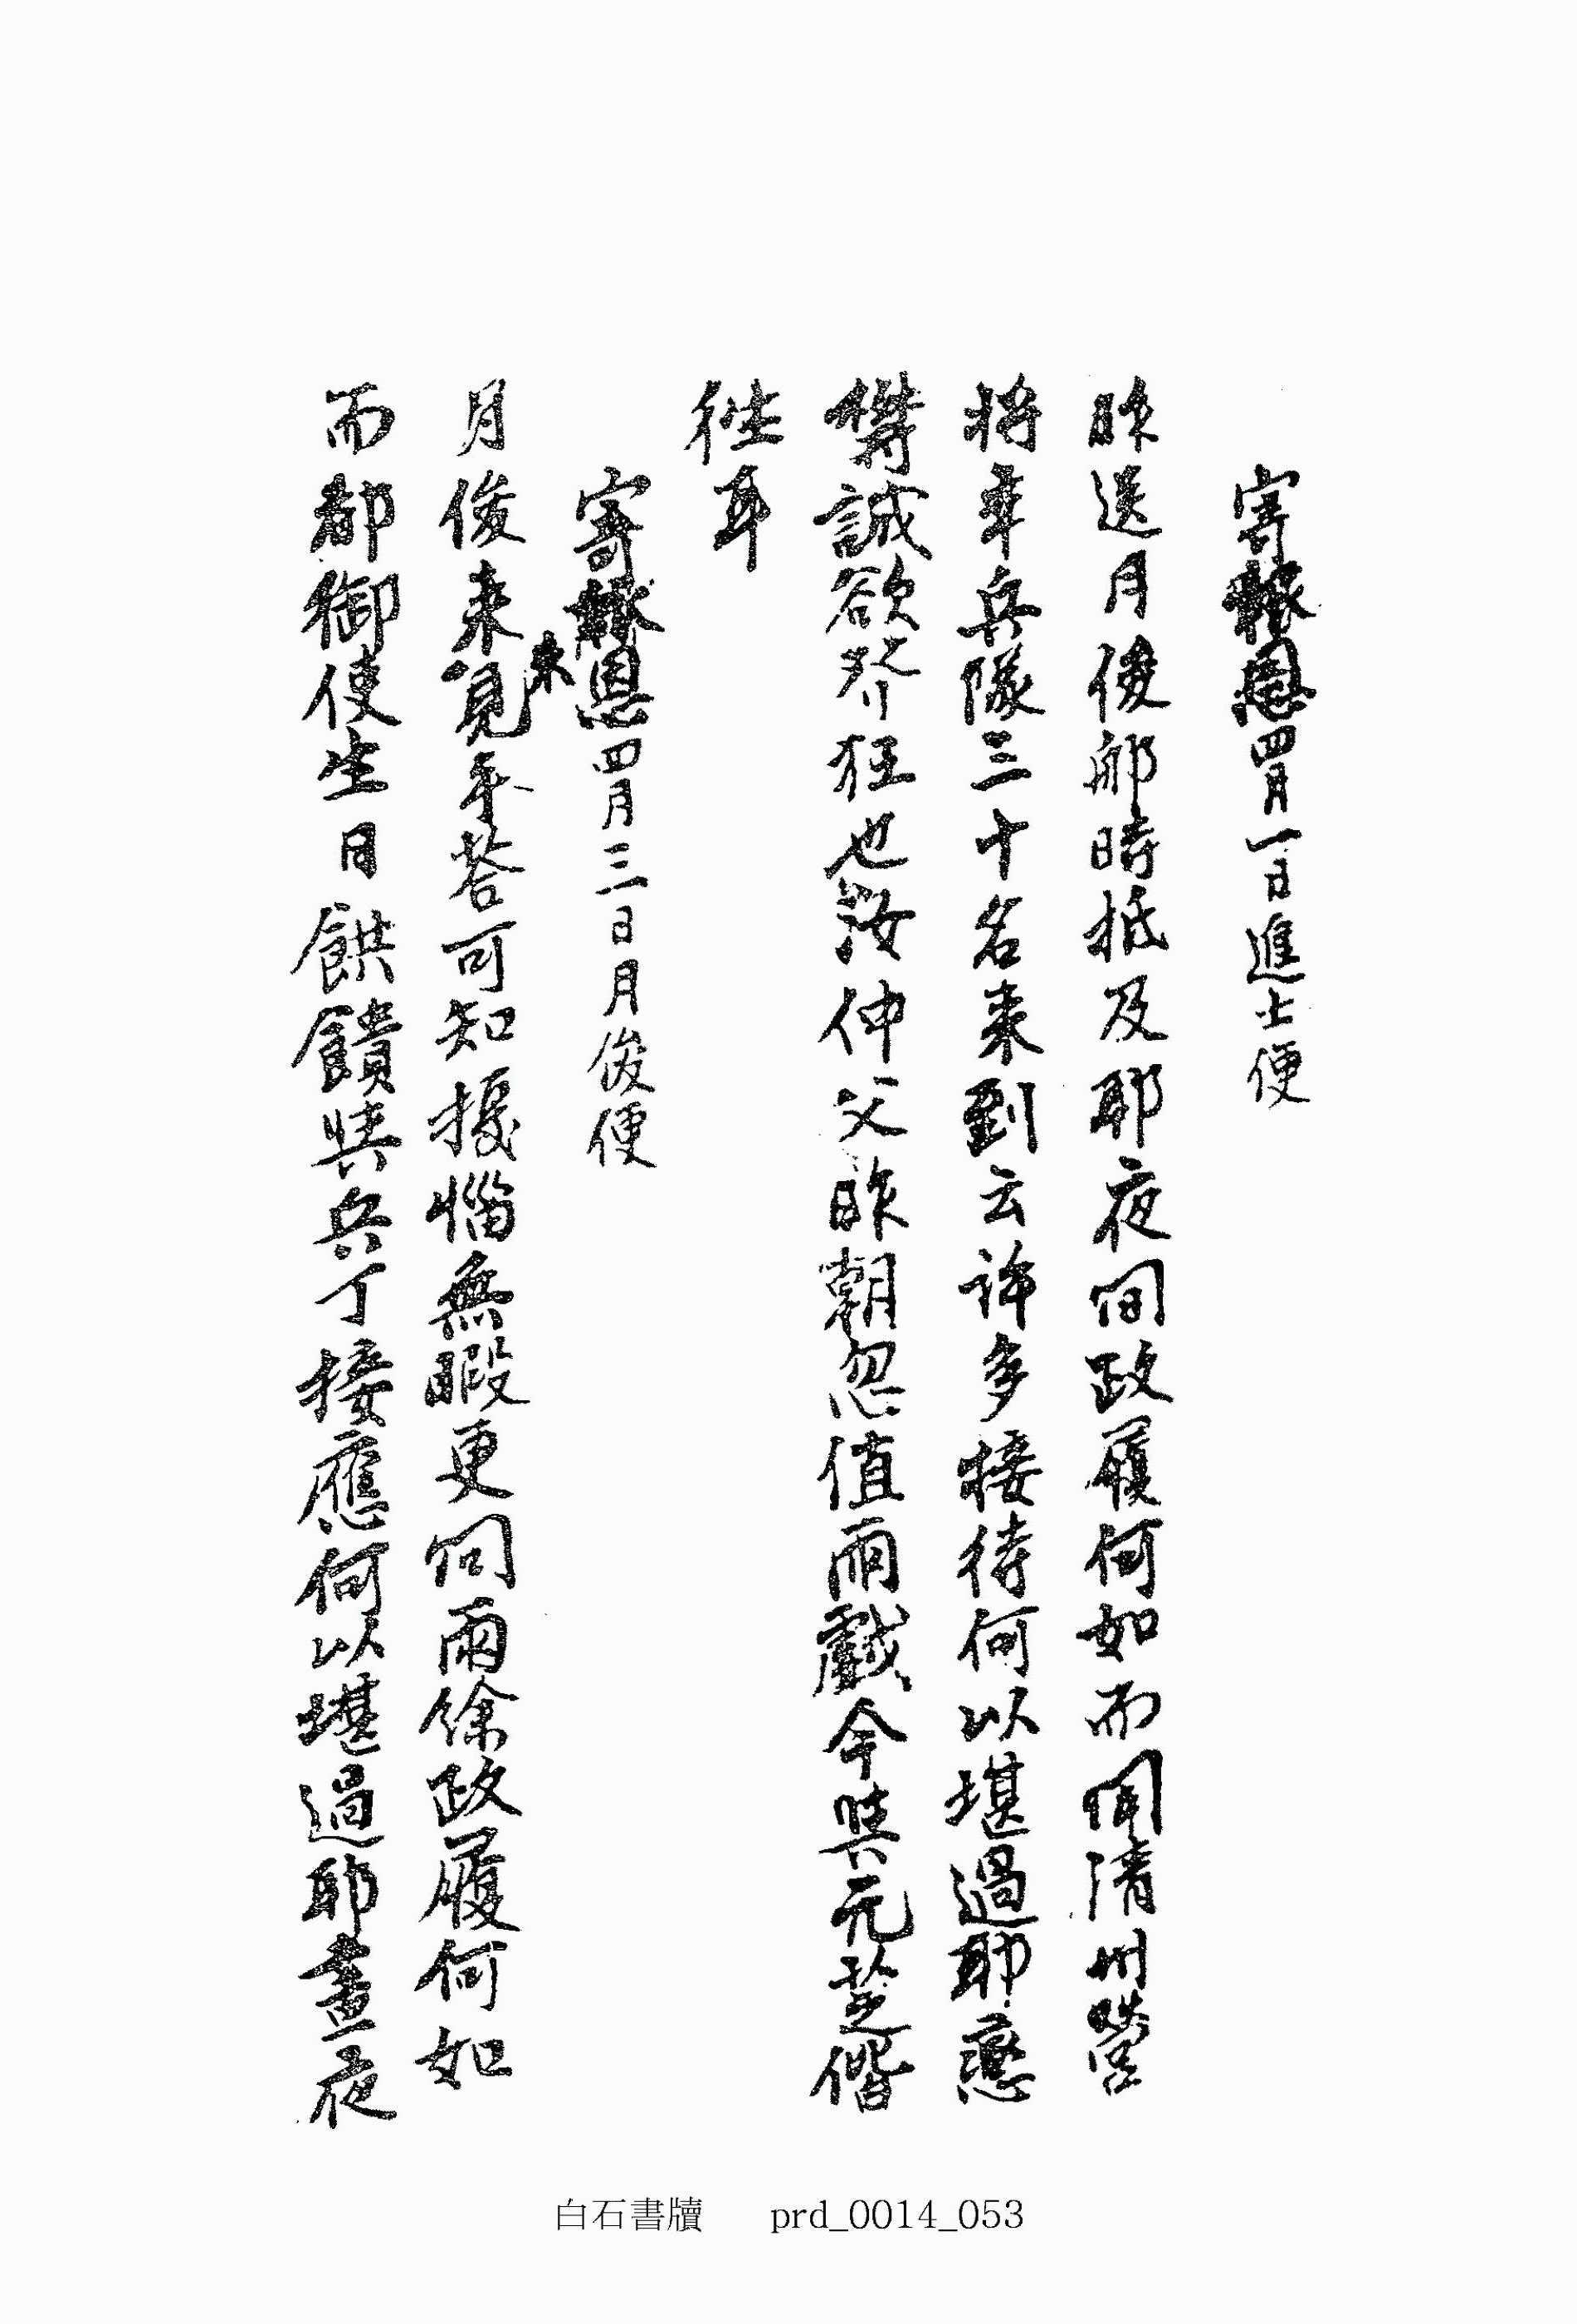 寄恩四月一日進士便
昨送月俊那時抵及耶夜間政履何如而聞淸州營
將率兵隊三十名來到云許多接待何以堪過耶戀
欝誠欲發狂也汝仲父昨朝忽値雨戱今與元芝偕
徃耳
寄恩四月三日月俊便
月俊來見來平答可知擾惱無暇更問雨餘政履何如
而都御使生日餽饋與兵丁接應何以堪過耶晝夜
白石書牘 prd_0014_053